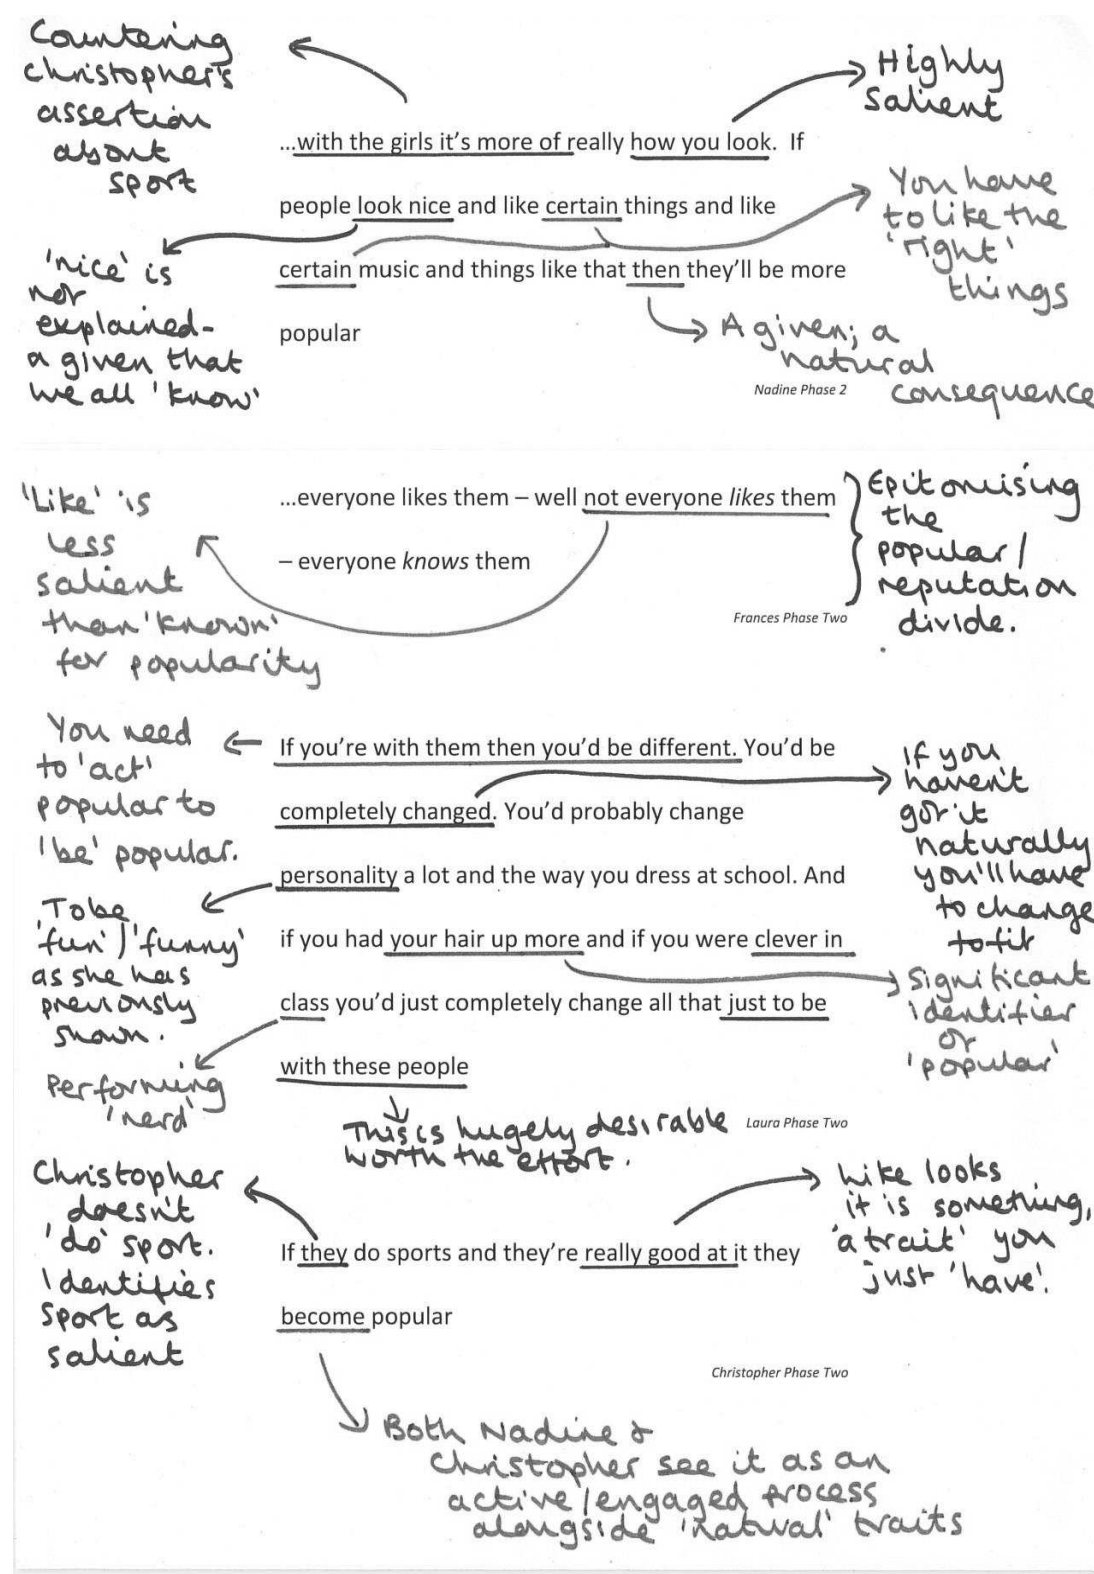 Countering
christopher's
assertion
about
sport
Highly
salient
...with the girls it's more of really how you look. If
people look nice and like certain things and like
certain music and things like that then they'll be more
popular
You have
to like the
'right'
things
'nice' is
not
explained-
a given that
we all 'know'
A given; a
natural
consequence
Nadine Phase 2
'Like' is
less
salient
than 'known'
for popularity
...everyone likes them – well not everyone likes them
– everyone knows them
Epitomising
the
popular/
reputation
divide.
Frances Phase Two
You need
to 'act'
popular to
'be' popular.
If you're with them then you'd be different. You'd be
completely changed. You'd probably change
personality a lot and the way you dress at school. And
if you had your hair up more and if you were clever in
class you'd just completely change all that just to be
with these people
If you
haven't
got it
naturally
you'll have
to change
to fit
To be
'fun'/'funny'
as she has
previously
shown.
Significant
identifier
of
'popular'
Performing
'nerd'
This is hugely desirable
worth the effort.
Laura Phase Two
Christopher
doesn't
'do' sport.
Identifies
sport as
salient
If they do sports and they're really good at it they
become popular
Like looks
it is something,
'a trait' you
just 'have'.
Christopher Phase Two
Both Nadine &
Christopher see it as an
active/engaged process
alongside 'natural' traits